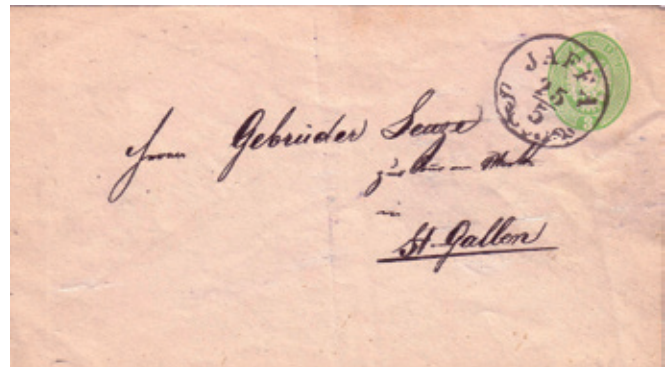 JAFFA
25
5
Herren Gebrüder
zur
in
St. Gallen